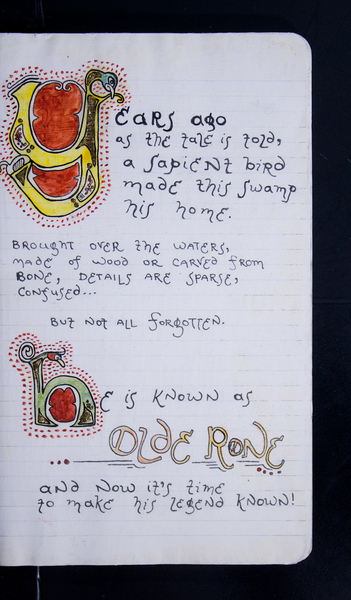 Years ago
as the tale is told,
a sapient bird
made this swamp
his home.
Brought over the waters,
made of wood or carved from
bone, details are sparse,
confused...
but not all forgotten.
He is known as
Olde Rone
and now it's time
to make his legend known!